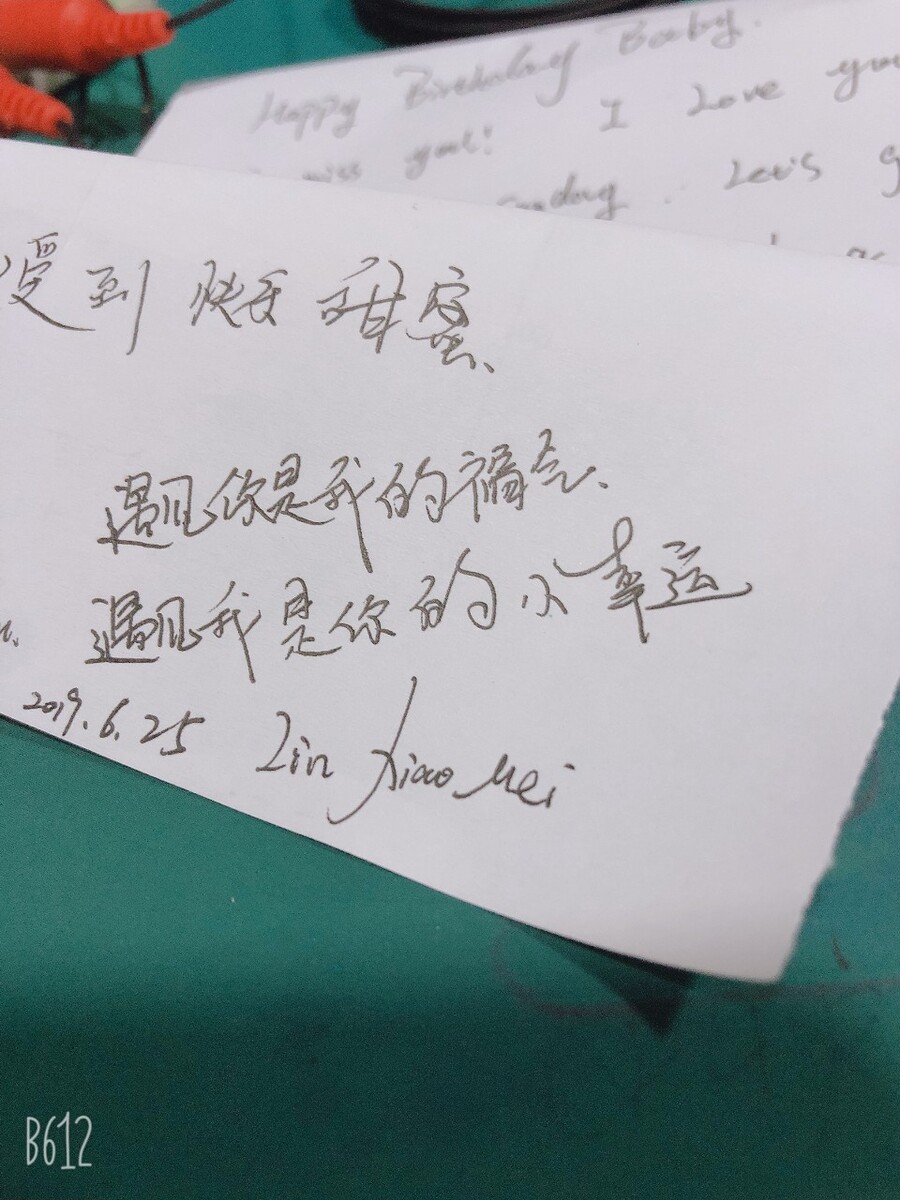 Happy Birthday Baby.
I Love you
miss you!
Sunday. Let's g
受到 快乐 甜蜜、
遇见你是我的福气、
遇见我是你的小幸运
2019.6.25 Lin Xiao Mei
B612